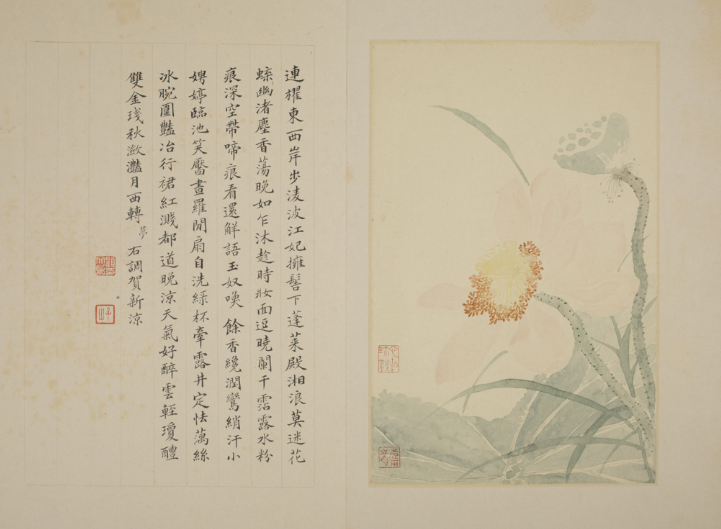 連櫂東西岸步淩波江妃擁髻下蓬萊殿湘浪莫迷花
蝶幽渚塵香蕩晚如乍沐趂時妝面逗曉闌干霑露水粉
痕深空帶啼痕看還解語玉奴喚 餘香纔潤鸞綃汗小
娉婷臨池笑靨晝羅閒扇自洗綠杯牽露井定怯藕絲
冰腕圍豔冶行裙紅濺都道晚涼天氣好醉雲輕瓊醴
雙金琖秋瀲灩月西轉夢 右調賀新涼